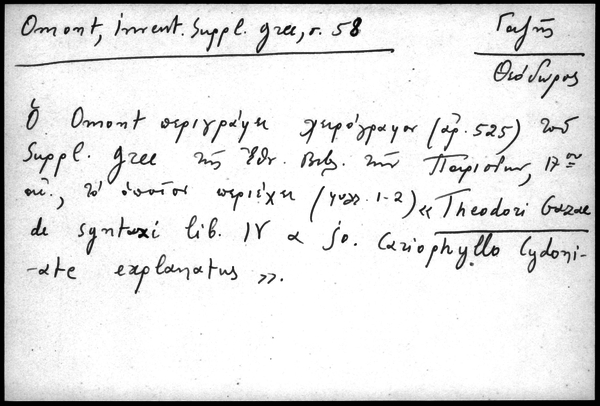 Omont, invent. Suppl. grec, σ. 58
Γαζῆς
Θεόδωρος
Ὁ Omont περιγράφει χειρόγραφον (ἀρ. 525) τοῦ
Suppl. grec τῆς Ἐθν. Βιβ. τῶν Παρισίων, 17ου
αἰ., τὸ ὁποῖον περιέχει (φυλλ. 1-2) « Theodori Gazae
de syntaxi lib. IV a Jo. Cariophyllo Cydoni-
-ate explanatus ».